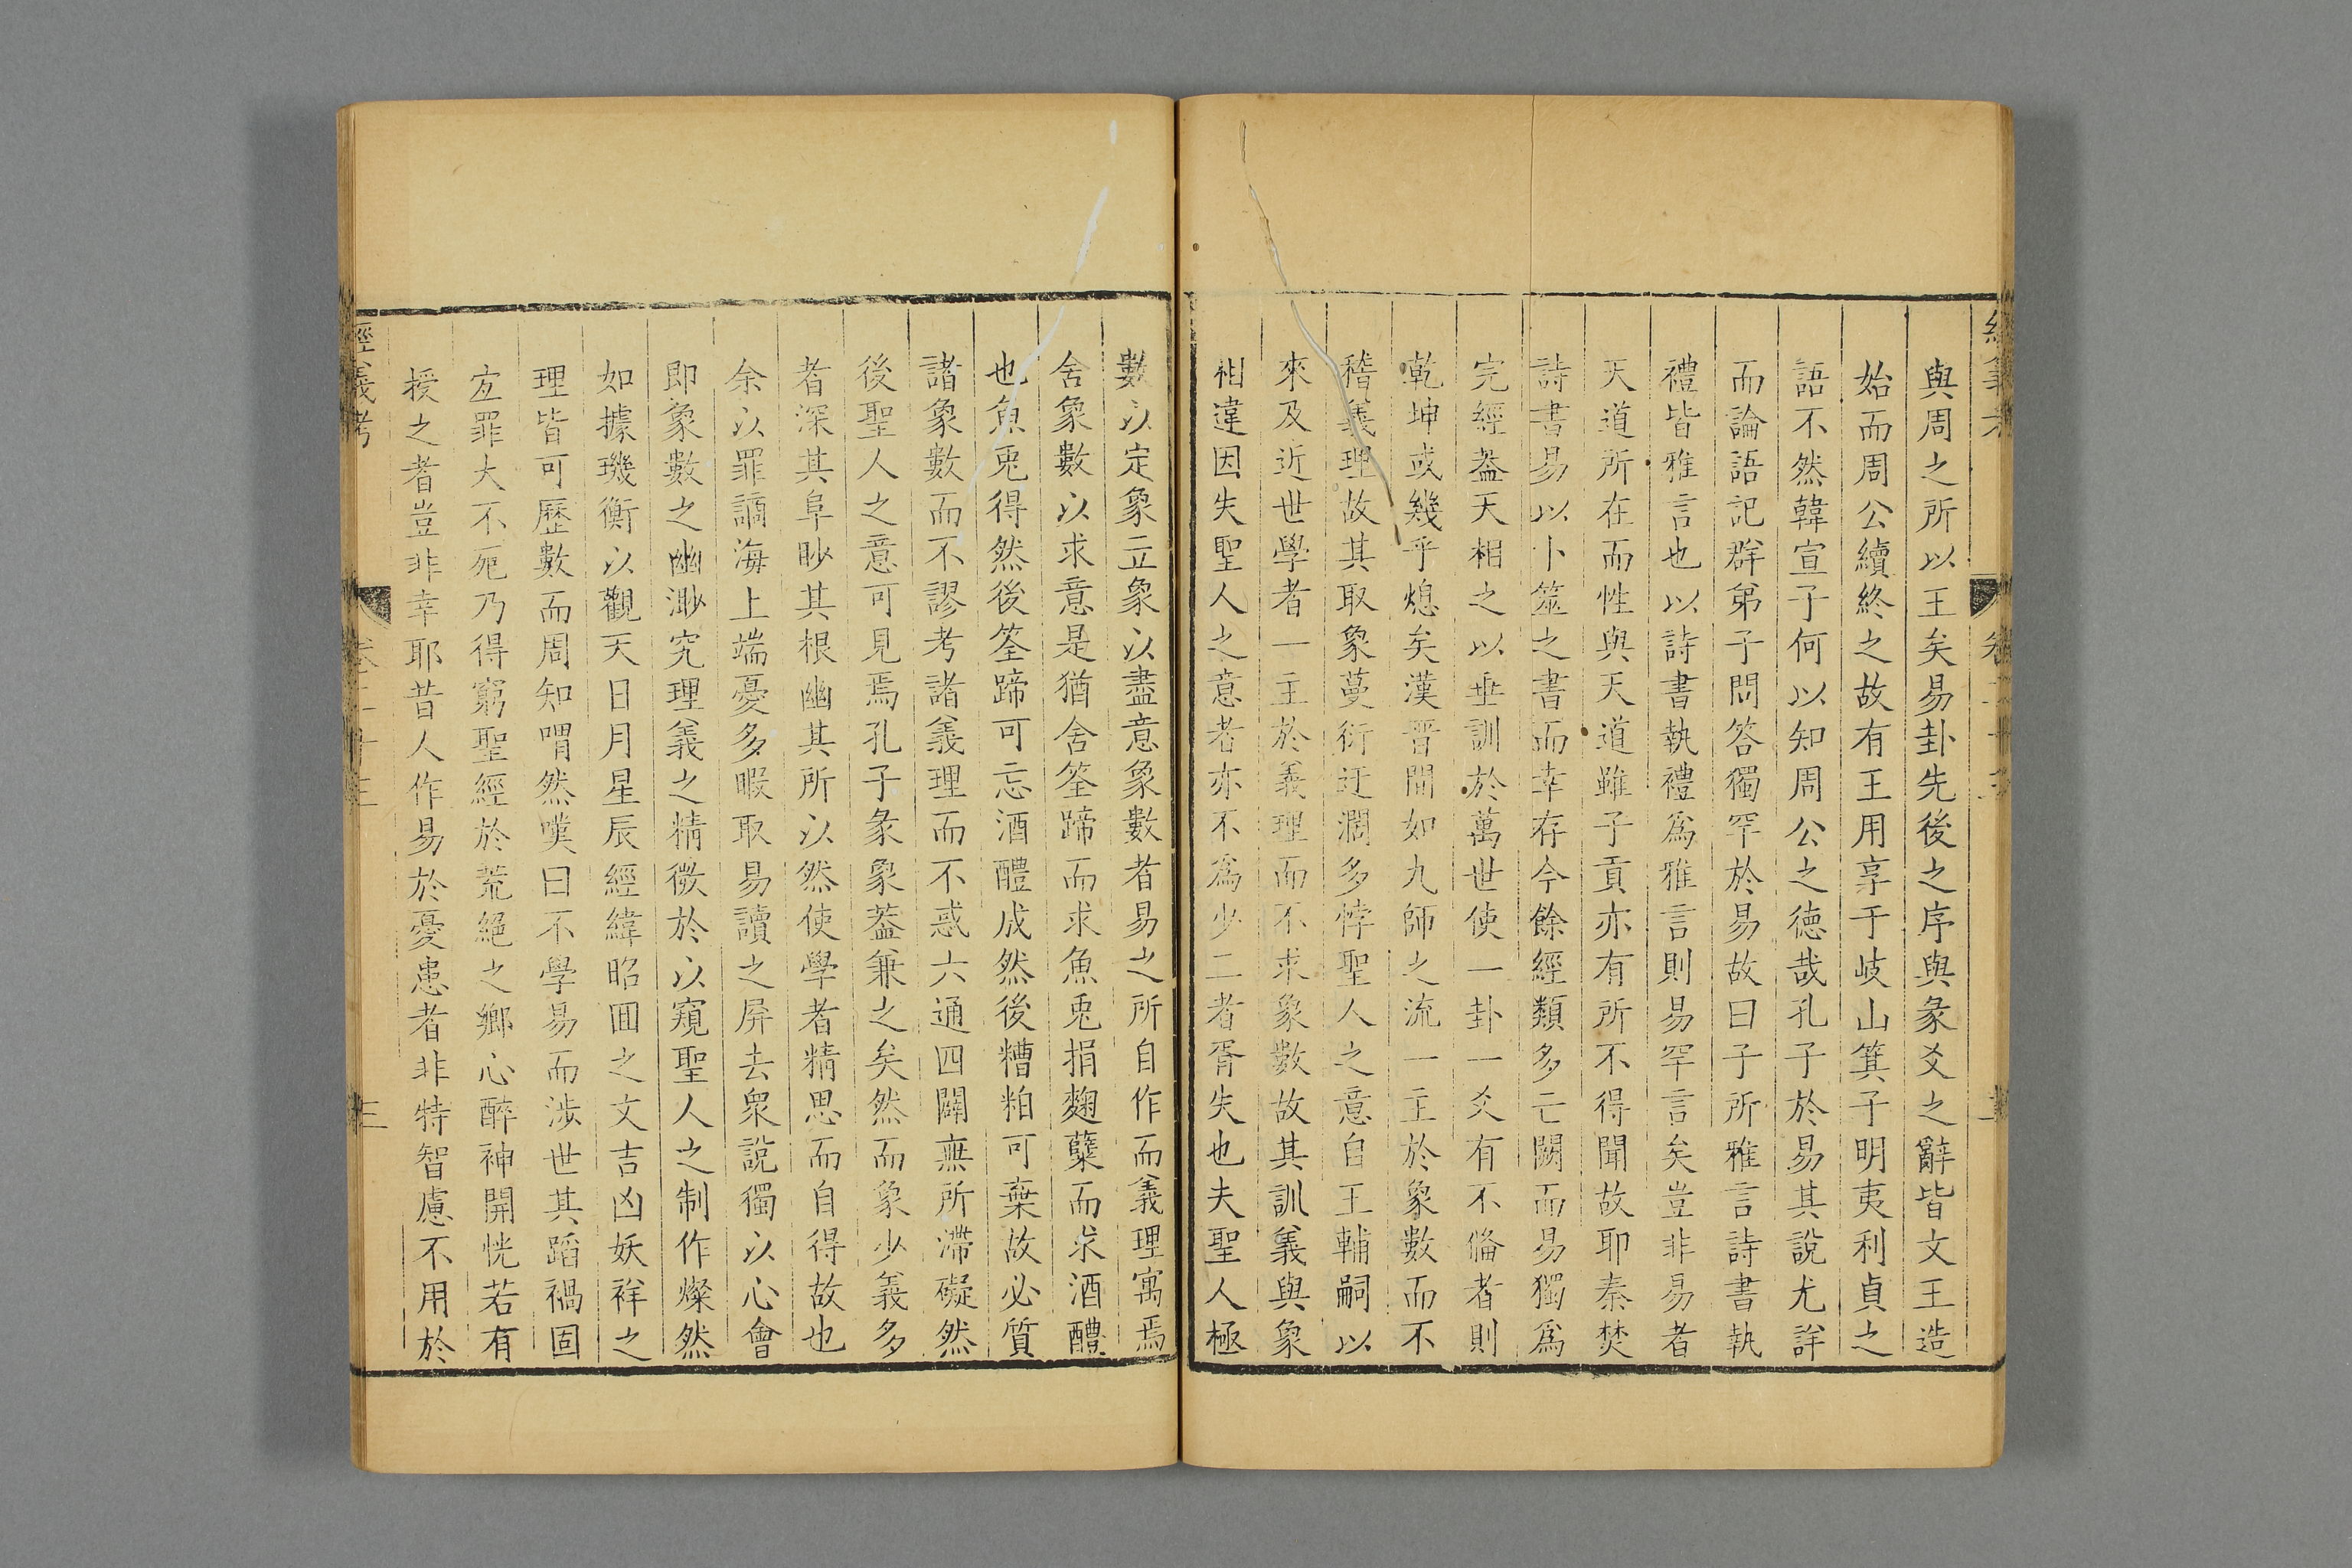 與周之所以王矣易卦先後之序與彖爻之辭皆文王造
始而周公續終之故有王用享于岐山箕子明夷利貞之
語不然韓宣子何以知周公之德哉孔子於易其說尤詳
而論語記群弟子問答獨罕於易故曰子所雅言詩書執
禮皆雅言也以詩書執禮爲雅言則易罕言矣豈非易者
天道所在而性與天道雖子貢亦有所不得聞故耶秦焚
詩書易以卜筮之書而幸存今餘經類多亡闕而易獨爲
完經葢天相之以垂訓於萬世使一卦一爻有不僃者則
乾坤或幾乎熄矣漢晋間如九師之流一主於象數而不
稽義理故其取象蔓衍迂濶多悖聖人之意自王輔嗣以
來及近世學者一主於義理而不求象數故其訓義與象
相違因失聖人之意者亦不爲少二者胥失也夫聖人極
數以定象立象以盡意象數者易之所自作而義理寓焉
舍象數以求意是猶舍筌蹄而求魚兎捐麴糵而求酒醴
也魚兎得然後筌蹄可忘酒醴成然後糟粕可棄故必質
諸象數而不謬考諸義理而不惑六通四闢無所滯礙然
後聖人之意可見焉孔子彖象葢兼之矣然而象少義多
者深其阜眇其根幽其所以然使學者精思而自得故也
余以罪謫海上端憂多暇取易讀之屏去衆說獨以心會
即象數之幽渺究理義之精微於以窺聖人之制作燦然
如據璣衡以觀天日月星辰經緯昭回之文吉凶妖祥之
理皆可歷數而周知喟然嘆曰不學易而涉世其蹈禍固
宜罪大不死乃得窮聖經於荒絕之鄉心醉神開恍若有
授之者豈非幸耶昔人作易於憂患者非特智慮不用於
經義考
三